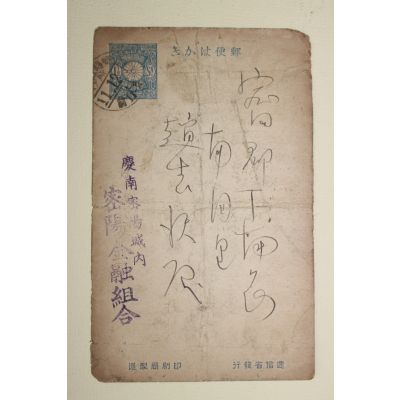 郵便はかき
密陽郡下南面
殿
慶南密陽城内
密陽金融組合
11.12
遞信省發行
印刷局製造